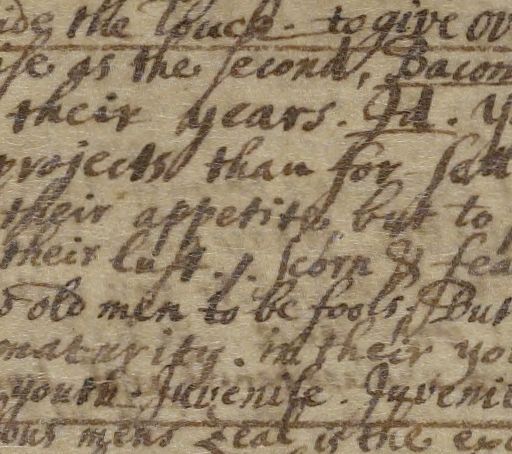 the Touch - to give ov
as the second, Bacon
their years. Id. y
projects than for
their appetite but to
their lust. /. scorn & fea
old men to be fools. But
maturity. in their you
youth - Juvenile. Juvenil
mens zeal is the ex